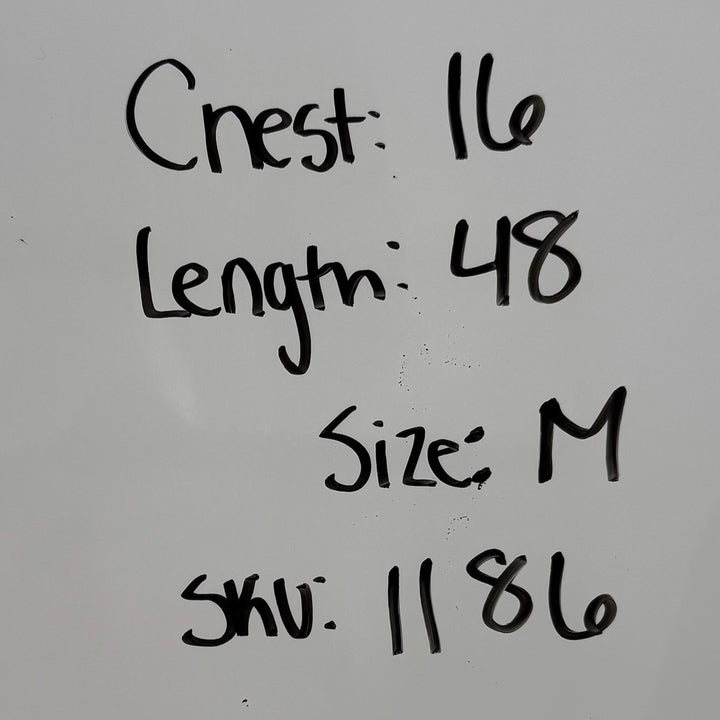 Chest: 16
Length: 48
Size: M
SKU: 1186